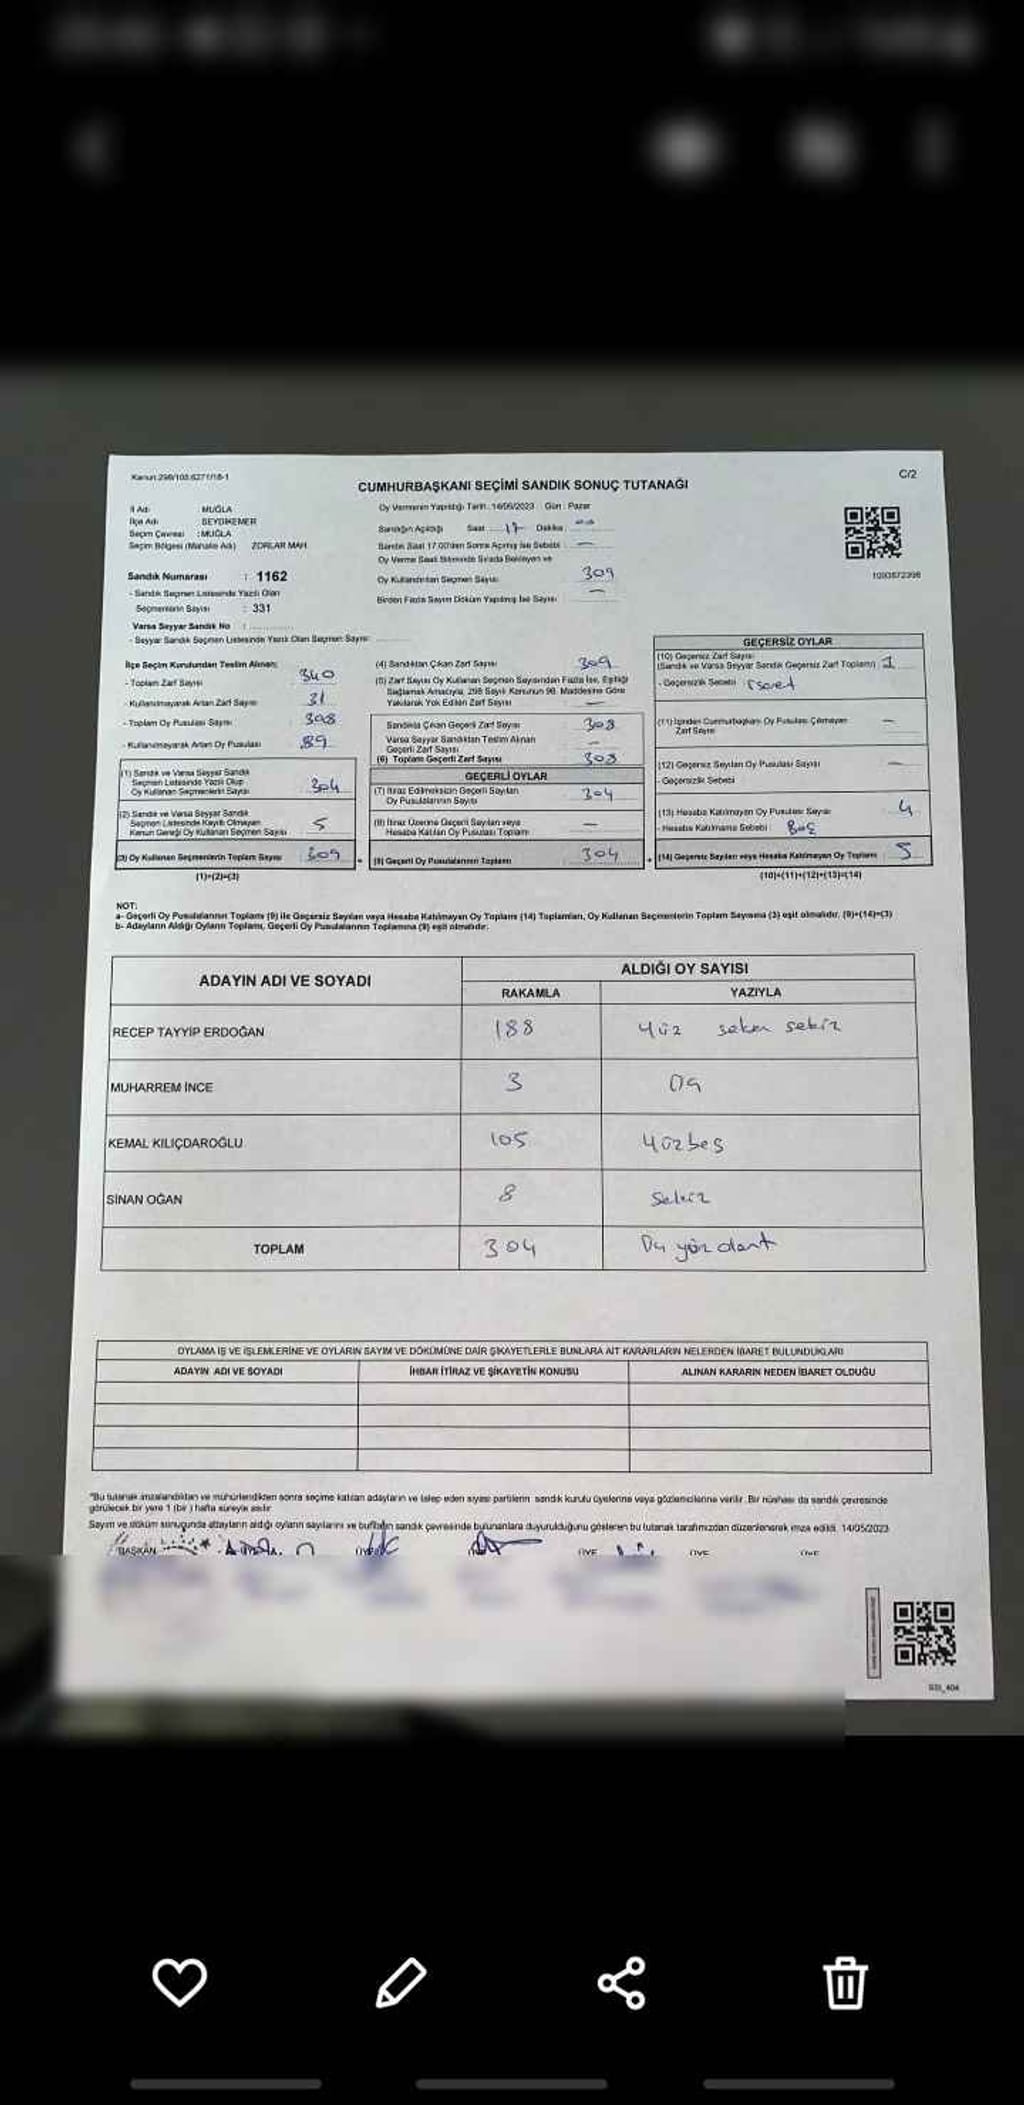 Kanun:298/103.6271/18-1
C/2
CUMHURBAŞKANI SEÇİMİ SANDIK SONUÇ TUTANAĞI
İl Adı MUĞLA
İlçe Adı SEYDİKEMER
Seçim Çevresi : MUĞLA
Seçim Bölgesi (Mahalle Adı) ZORLAR MAH.
Sandık Numarası : 1162
- Sandık Seçmen Listesinde Yazılı Olan
Seçmenlerin Sayısı : 331
Varsa Seyyar Sandık No :
- Seyyar Sandık Seçmen Listesinde Yazılı Olan Seçmen Sayısı
Oy Vermenin Yapıldığı Tarih : 14/05/2023 Gün : Pazar
Sandığın Açıldığı Saat 17 Dakika
Sandık Saat 17.00'den Sonra Açılmış İse Sebebi —
Oy Verme Saati Bitiminde Sırada Bekleyen ve
Oy Kullandırılan Seçmen Sayısı 309
Birden Fazla Sayım Döküm Yapılmış İse Sayısı —
1093872398
İlçe Seçim Kurulundan Teslim Alınan:
- Toplam Zarf Sayısı 340
- Kullanılmayarak Artan Zarf Sayısı 31
- Toplam Oy Pusulası Sayısı 398
- Kullanılmayarak Artan Oy Pusulası 89
(1) Sandık ve Varsa Seyyar Sandık
Seçmen Listesinde Yazılı Olup
Oy Kullanan Seçmenlerin Sayısı 304
(2) Sandık ve Varsa Seyyar Sandık
Seçmen Listesinde Kayıtlı Olmayan
Kanun Gereği Oy Kullanan Seçmen Sayısı 5
(3) Oy Kullanan Seçmenlerin Toplam Sayısı 309
(1)+(2)=(3)
(4) Sandıktan Çıkan Zarf Sayısı 309
(5) Zarf Sayısı Oy Kullanan Seçmen Sayısından Fazla İse, Eşitliği
Sağlamak Amacıyla, 298 Sayılı Kanunun 98. Maddesine Göre
Yakılarak Yok Edilen Zarf Sayısı —
Sandıkta Çıkan Geçerli Zarf Sayısı 308
Varsa Seyyar Sandıktan Teslim Alınan
Geçerli Zarf Sayısı —
(6) Toplam Geçerli Zarf Sayısı 308
GEÇERLİ OYLAR
(7) İtiraz Edilmeksizin Geçerli Sayılan
Oy Pusulalarının Sayısı 304
(8) İtiraz Üzerine Geçerli Sayılan veya
Hesaba Katılan Oy Pusulası Toplamı —
(9) Geçerli Oy Pusulalarının Toplamı 304
GEÇERSİZ OYLAR
(10) Geçersiz Zarf Sayısı
(Sandık ve Varsa Seyyar Sandık Geçersiz Zarf Toplamı) 1
- Geçersizlik Sebebi İşaret
(11) İçinden Cumhurbaşkanı Oy Pusulası Çıkmayan
Zarf Sayısı —
(12) Geçersiz Sayılan Oy Pusulası Sayısı —
- Geçersizlik Sebebi
(13) Hesaba Katılmayan Oy Pusulası Sayısı 4
- Hesaba Katılmama Sebebi Boş
(14) Geçersiz Sayılan veya Hesaba Katılmayan Oy Toplamı 5
(10)+(11)+(12)+(13)=(14)
NOT:
a- Geçerli Oy Pusulalarının Toplamı (9) ile Geçersiz Sayılan veya Hesaba Katılmayan Oy Toplamı (14) Toplamları, Oy Kullanan Seçmenlerin Toplam Sayısına (3) eşit olmalıdır. (9)+(14)=(3)
b- Adayların Aldığı Oyların Toplamı, Geçerli Oy Pusulalarının Toplamına (9) eşit olmalıdır.
ADAYIN ADI VE SOYADI ALDIĞI OY SAYISI
RAKAMLA YAZIYLA
RECEP TAYYİP ERDOĞAN 188 Yüz seksen sekiz
MUHARREM İNCE 3 Üç
KEMAL KILIÇDAROĞLU 105 Yüzbeş
SİNAN OĞAN 8 Sekiz
TOPLAM 304 Üç yüz dört
OYLAMA İŞ VE İŞLEMLERİNE VE OYLARIN SAYIM VE DÖKÜMÜNE DAİR ŞİKAYETLERLE BUNLARA AİT KARARLARIN NELERDEN İBARET BULUNDUKLARI
ADAYIN ADI VE SOYADI İHBAR İTİRAZ VE ŞİKAYETİN KONUSU ALINAN KARARIN NEDEN İBARET OLDUĞU
"Bu tutanak imzalandıktan ve mühürlendikten sonra seçime katılan adayların ve talep eden siyasi partilerin sandık kurulu üyelerine veya gözlemcilerine verilir. Bir nüshası da sandık çevresinde
görülecek bir yere 1 (bir) hafta süreyle asılır
Sayım ve döküm sonucunda adayların aldığı oyların sayılarını ve bunların sandık çevresinde bulunanlara duyurulduğunu gösteren bu tutanak tarafımızdan düzenlenerek imza edildi. 14/05/2023
BAŞKAN ÜYE ÜYE ÜYE